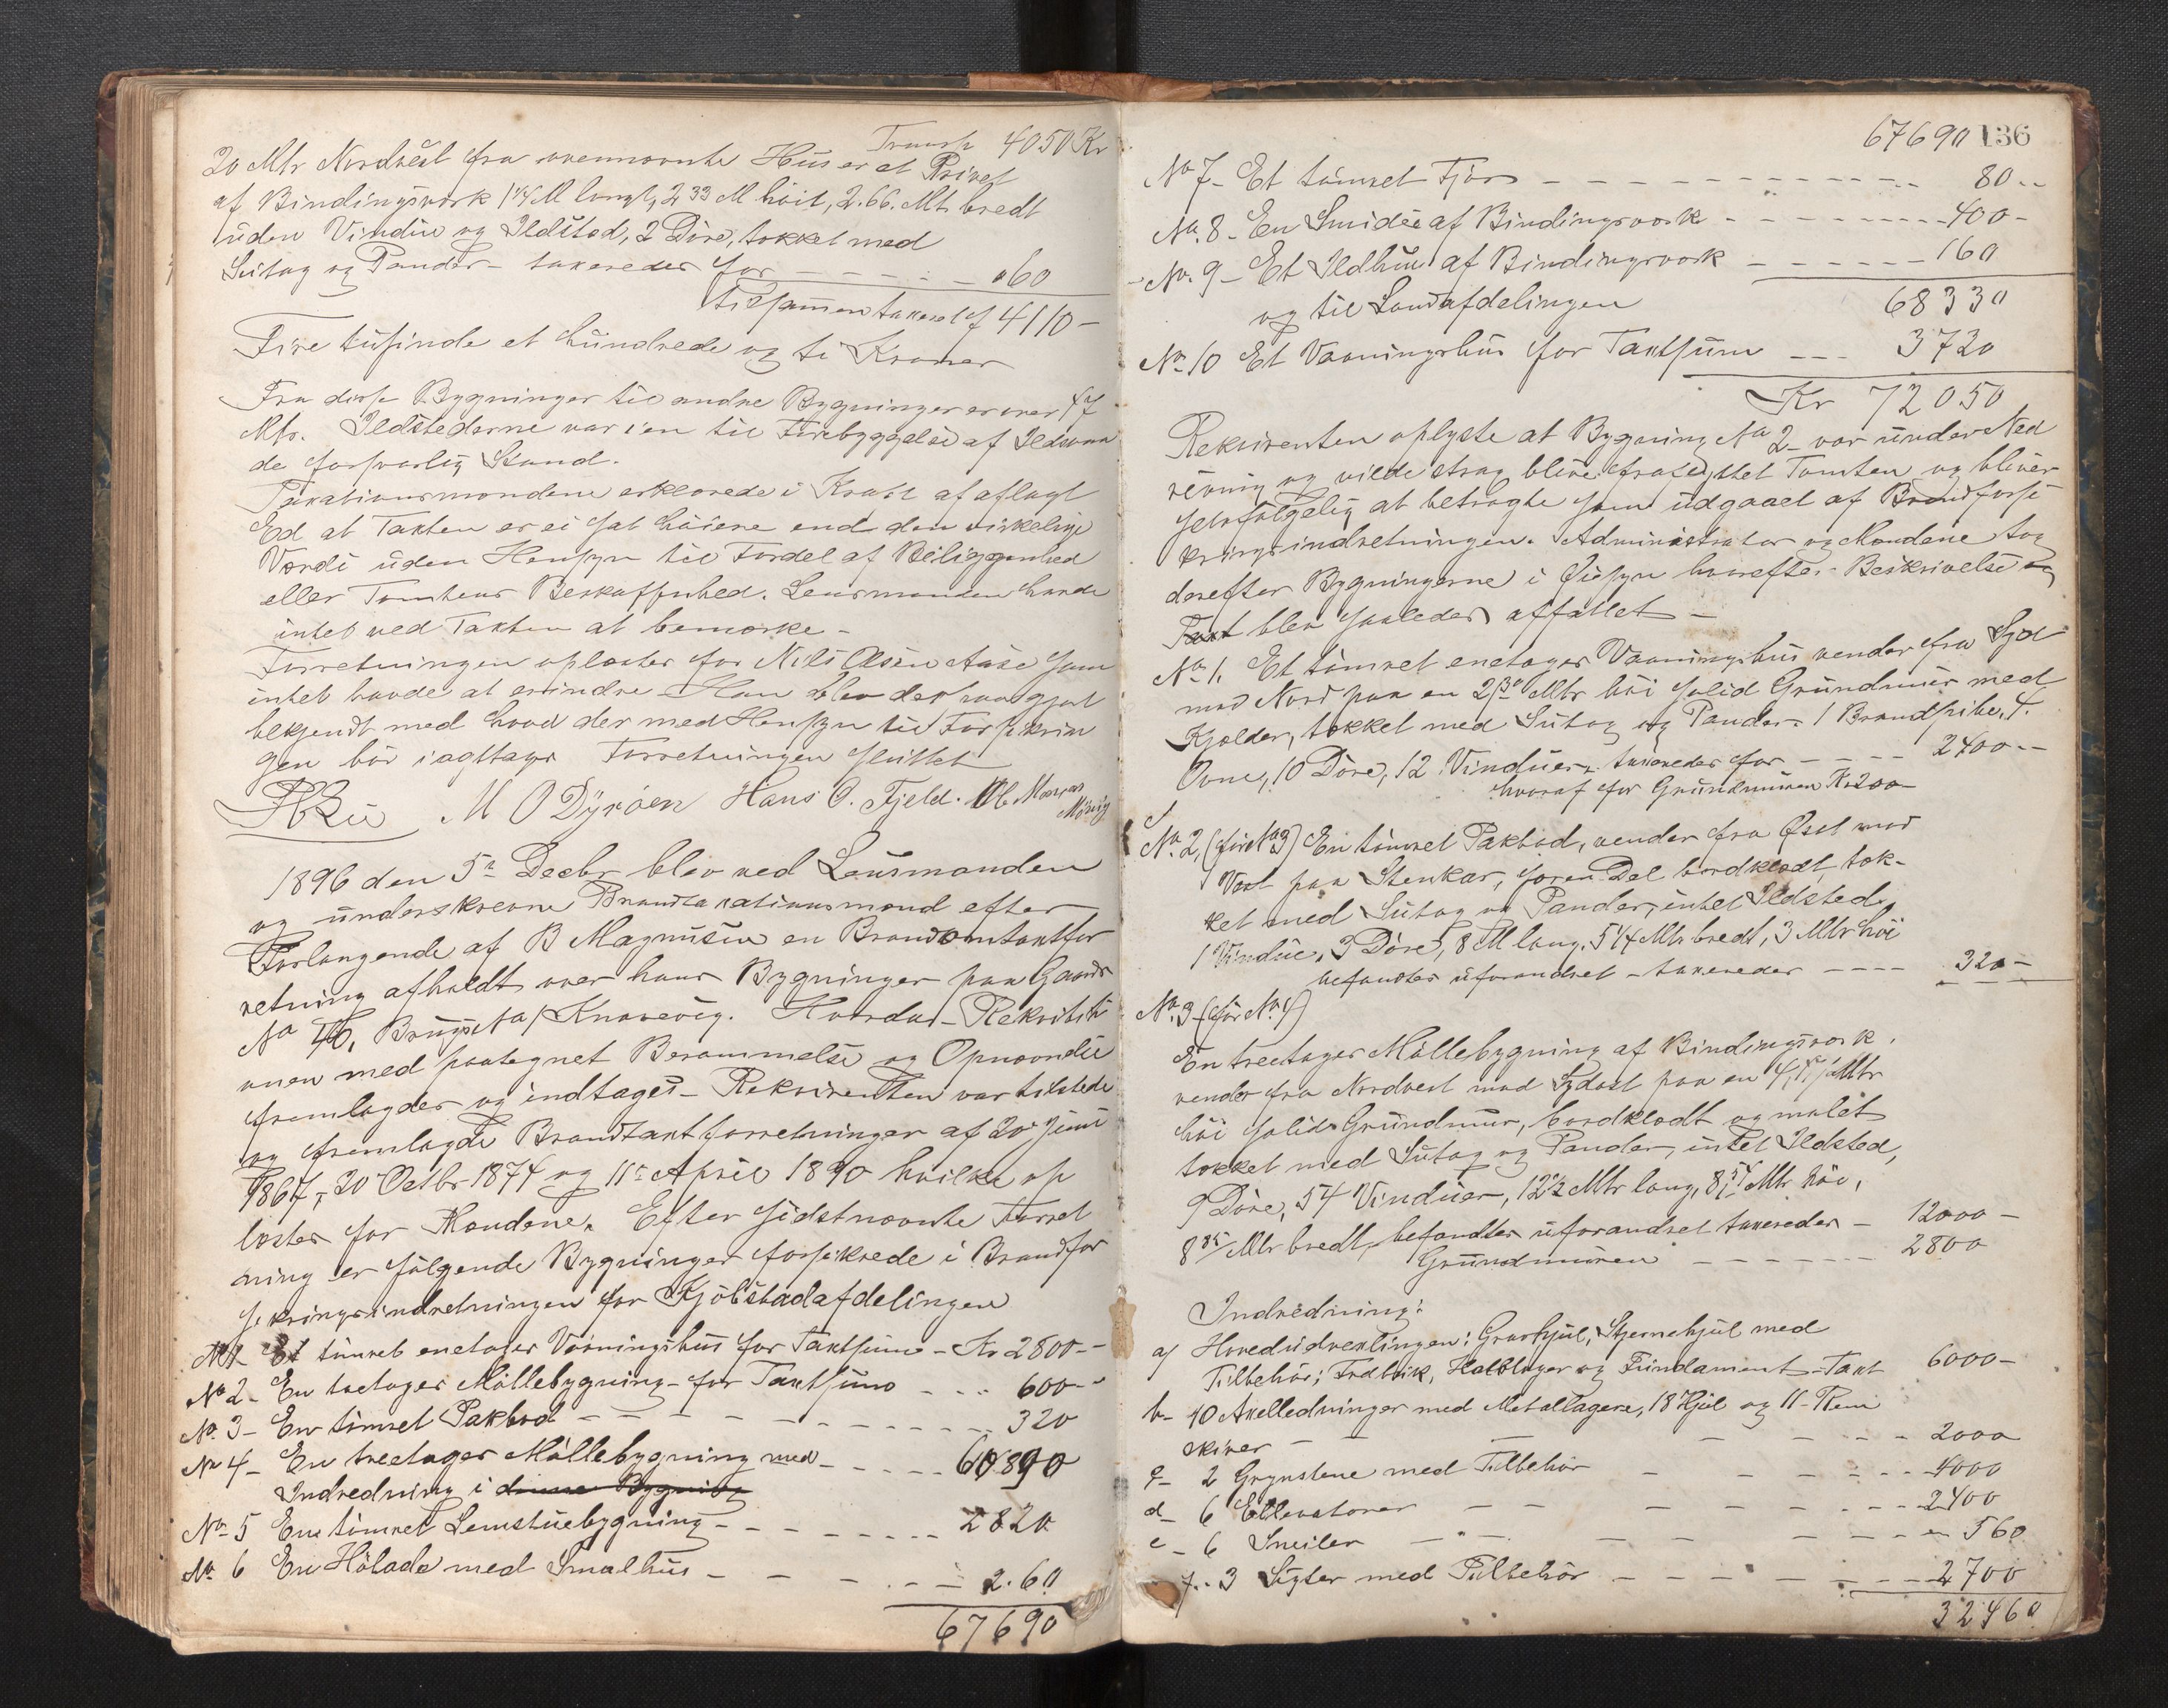 Transp 4050 Kr
20 Mtr Nordvest fra ovennævnte Hus er et Privet
af Bindingsværk 1¼ M langt, 2.33 M høit, 2.66. Mtr bredt
uden Vindue og Ildsted, 2 Döre, tækket med
Sutag og Pander - taxeredes for - - - - - 60
tilsammen taxeret f 4110 -
Fire tusinde et hundrede og ti Kroner
Fra disse Bygninger til andre Bygninger er over 47
Mtr. Ildstederne var i en til Forebyggelse af Ildsvaa
de forsvarlig Stand.
Taxationsmændene erklærede i Kraft af aflagt
Ed at Taxten er ei sat höiere end den virkelige
Værdi uden Hensyn til Fordel af Beliggenhed
eller Tomtens Beskaffenhed. Lensmanden havde
intet ved Taxten at bemærke -
Forretningen oplæstes for Nils Olsen Aase som
intet havde at erindre - Han blev derhos gjort
bekjendt med hvad der med Hensyn til Forsikrin
gen bör iagttages Forretningen sluttet
M O Dyröen Hans O. Fjeld.
1896 den 5te Decbr blev ved Lensmanden
og underskrevne Brandtaxationsmænd efter
Forlangende af B Magnusen en Brandomtaxtfor
retning afholdt over hans Bygninger paa Gaards
No 40, Brugs No / Knarevig. Hvorda - Rekvisiti
onen med paategnet Berammelse og Opnævnelse
fremlagdes og indtages - Rekvirenten var tilstede
og fremlagde Brandtaxtforretninger af 20de Juni
1867, 20 Octbr 1874 og 11te April 1890 hvilke op
læstes for Mændene. Efter sidstnævnte Forret
ning er fölgende Bygninger forsikrede i Brandfor
sikringsindretningen for Kjöbstadafdelingen
No 1 Et tömret enetages Vaaningshus for Taxtsum - Kr 2800 -
No 2 - En toetages Möllebygning - for Taxtsum - - - 600 -
No 3 - En tömret Pakbod - - - - - - - - 320
No 4 - En treetages Möllebygning med - - - - 60890
Indredning i denne Bygning
No 5 En tömret Lemstuebygning - - - - - - - 2820
No 6 En Hölade med Smalhus - - - - - - 260
67690
67690 136
No 7 - Et tömret Fjös - - - - - - - - - - - 80 -
No. 8 - En Smidie af Bindingsværk - - - - - - - 400 -
No. 9 - Et Ildhus af Bindingsværk - - - - - - 160
68330
og til Landafdelingen
No 10 Et Vaaningshus for Taxtsum - - - 3720
Kr 72050
Rekvirenten oplyste at Bygning No 2 - var under Ned
rivning og vilde strax blive fraflyttet Tomten og bliver
selvfölgelig at betragte som udgaaet af Brandforsi
kringsindretningen. Administrator og Mændene tog
derefter Bygningerne i Öiesyn hvorefter Beskrivelse og
Taxt blev saaledes affattet -
No 1. Et tömret enetages Vaaningshus vender fra Syd
mod Nord paa en 2,30 Mtr höi solid Grundmur med
Kjelder, tækket med Sutag og Pander. 1 Brandpibe, 4.
Ovne, 10 Döre, 12 Vinduer, taxeredes for - - - - 2400 --
hvoraf for Grundmuren Kr 200 -
No. 2, (för No 3) En tömret Pakbod, vender fra Öst mod
Vest paa Stenkar, for en Del bordklædt, tæk-
ket med Sutag og Pander, intet Ildsted,
1 Vindue, 3 Döre, 8 M lang. 5¼ Mtr bredt, 3 Mtr höi
befandtes uforandret - taxeredes - - - - 320 -
No. 3 - (för No. 4)
En treetages Möllebygning af Bindingsværk.
vender fra Nordvest mod Sydost paa en Mtr
höi solid Grundmur, bordklædt og malet
tækket med Sutag og Pander, intet Ildsted,
9 Döre, 54 Vinduer, 12½ Mtr lang, Mtr höi,
8 85 Mtr bredt, befandtes uforandret taxeredes - 12000 -
Grundmuren - - - - - - - 2800
Indredning:
a) Hovedudvexlingen: Gravhjul, Stjernehjul med
Tilbehör; Fodblik, Halslager og Fundament - Taxt 6000 -
b - 10 Axelledninger med Metallagere, 18 Hjul og 11 - Rem
skiver - - - - - - - 2000
c - 2 Grynstene med Tilbehör - - - - - 4000
d - 6 Ellevatorer - - - - - - - 2400
e - 6 Sneiler - - - - - - 560
f - 3 Sigter med Tilbehör - - - - - - - 2700
32460